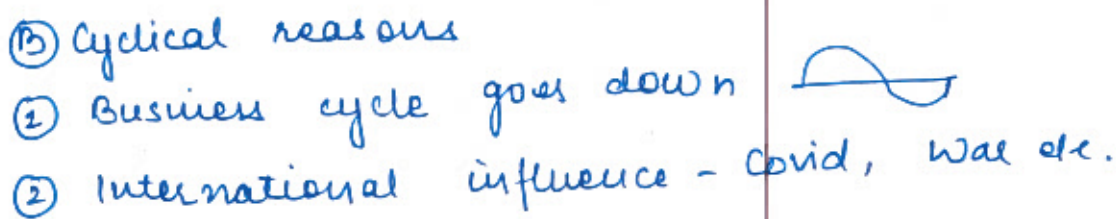 Ⓑ Cyclical reasons
① Business cycle goes down
② International influence - Covid, War etc.